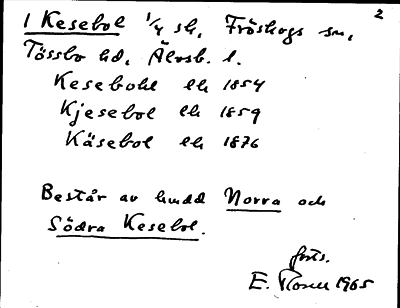 2
1 Kesebol 1/4 sk, Fröskogs sn,
Tössbo hd, Älvsb. l.
Kesebohl ek 1854
Kjesebol ek 1859
Käsebol ek 1876
Består av hmdd Norra och
Södra Kesebol.
forts.
E. Rosell 1965